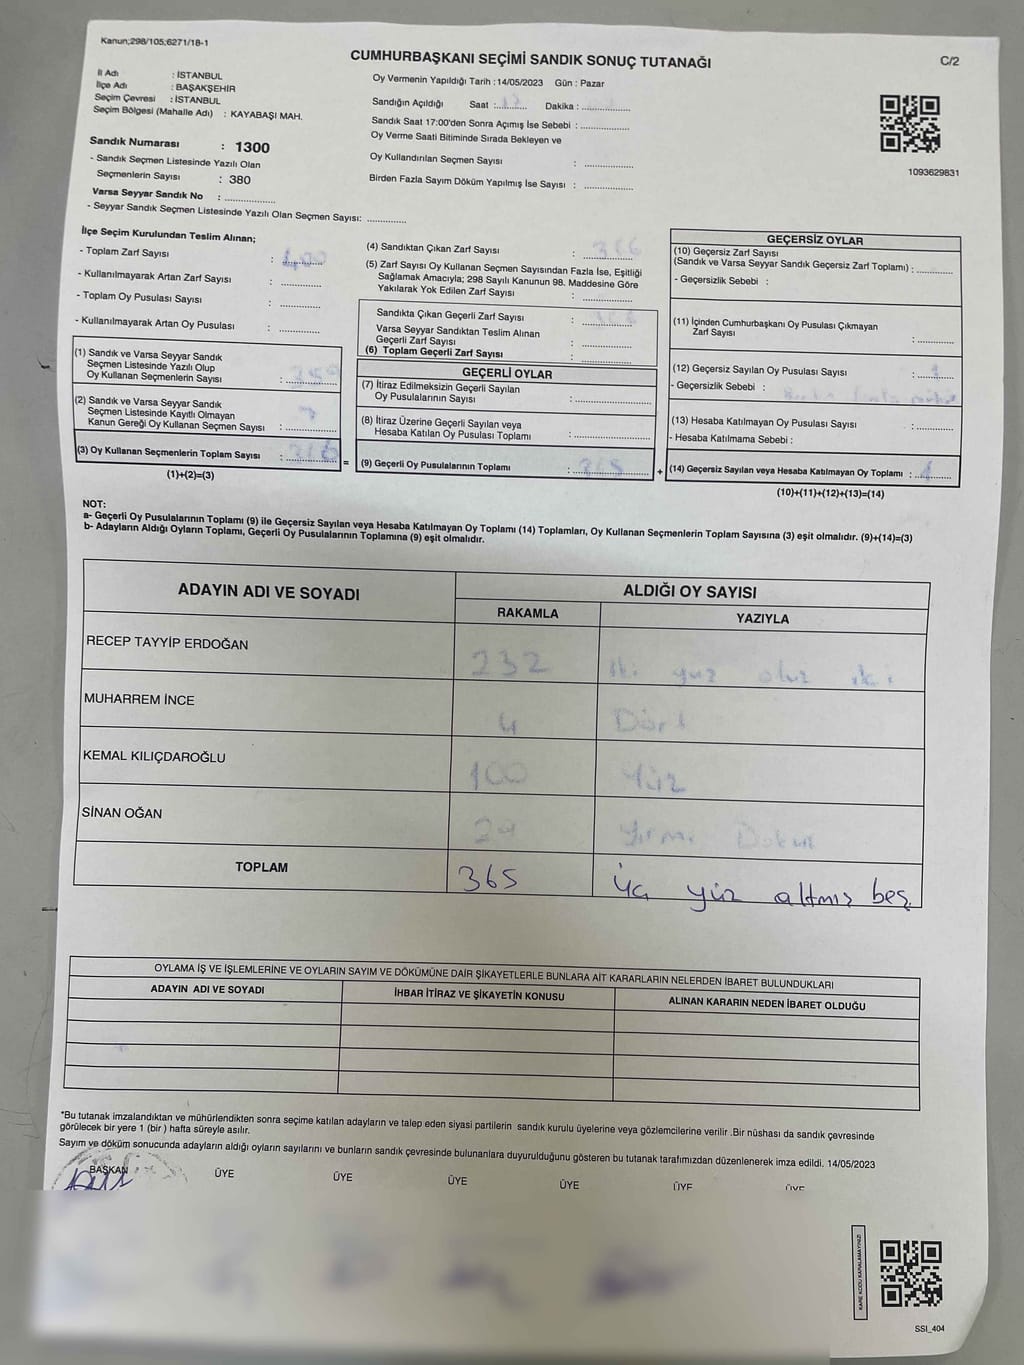 Kanun;298/105;6271/18-1
CUMHURBAŞKANI SEÇİMİ SANDIK SONUÇ TUTANAĞI
C/2
İl Adı : İSTANBUL
İlçe Adı : BAŞAKŞEHİR
Seçim Çevresi : İSTANBUL
Seçim Bölgesi (Mahalle Adı) : KAYABAŞI MAH.
Sandık Numarası : 1300
- Sandık Seçmen Listesinde Yazılı Olan
Seçmenlerin Sayısı : 380
Varsa Seyyar Sandık No : ................
- Seyyar Sandık Seçmen Listesinde Yazılı Olan Seçmen Sayısı: .............
Oy Vermenin Yapıldığı Tarih : 14/05/2023 Gün : Pazar
Sandığın Açıldığı Saat : 17 Dakika : ................
Sandık Saat 17:00'den Sonra Açımış İse Sebebi : ................
Oy Verme Saati Bitiminde Sırada Bekleyen ve
Oy Kullandırılan Seçmen Sayısı : ................
Birden Fazla Sayım Döküm Yapılmış İse Sayısı : ................
1093629831
İlçe Seçim Kurulundan Teslim Alınan;
- Toplam Zarf Sayısı : 400
- Kullanılmayarak Artan Zarf Sayısı : .............
- Toplam Oy Pusulası Sayısı : .............
- Kullanılmayarak Artan Oy Pusulası : .............
(1) Sandık ve Varsa Seyyar Sandık
Seçmen Listesinde Yazılı Olup
Oy Kullanan Seçmenlerin Sayısı : 359
(2) Sandık ve Varsa Seyyar Sandık
Seçmen Listesinde Kayıtlı Olmayan
Kanun Gereği Oy Kullanan Seçmen Sayısı : 7
(3) Oy Kullanan Seçmenlerin Toplam Sayısı : 366
(1)+(2)=(3)
(4) Sandıktan Çıkan Zarf Sayısı : 366
(5) Zarf Sayısı Oy Kullanan Seçmen Sayısından Fazla İse, Eşitliği
Sağlamak Amacıyla; 298 Sayılı Kanunun 98. Maddesine Göre
Yakılarak Yok Edilen Zarf Sayısı : ................
Sandıkta Çıkan Geçerli Zarf Sayısı : 366
Varsa Seyyar Sandıktan Teslim Alınan
Geçerli Zarf Sayısı : ................
(6) Toplam Geçerli Zarf Sayısı : ................
GEÇERLİ OYLAR
(7) İtiraz Edilmeksizin Geçerli Sayılan
Oy Pusulalarının Sayısı : ................
(8) İtiraz Üzerine Geçerli Sayılan veya
Hesaba Katılan Oy Pusulası Toplamı : ................
= (9) Geçerli Oy Pusulalarının Toplamı : 365
GEÇERSİZ OYLAR
(10) Geçersiz Zarf Sayısı
(Sandık ve Varsa Seyyar Sandık Geçersiz Zarf Toplamı) : .............
- Geçersizlik Sebebi :
(11) İçinden Cumhurbaşkanı Oy Pusulası Çıkmayan
Zarf Sayısı : .............
(12) Geçersiz Sayılan Oy Pusulası Sayısı : 1
- Geçersizlik Sebebi : fazla mühür
(13) Hesaba Katılmayan Oy Pusulası Sayısı : .............
- Hesaba Katılmama Sebebi :
+ (14) Geçersiz Sayılan veya Hesaba Katılmayan Oy Toplamı : 1
(10)+(11)+(12)+(13)=(14)
NOT:
a- Geçerli Oy Pusulalarının Toplamı (9) ile Geçersiz Sayılan veya Hesaba Katılmayan Oy Toplamı (14) Toplamları, Oy Kullanan Seçmenlerin Toplam Sayısına (3) eşit olmalıdır. (9)+(14)=(3)
b- Adayların Aldığı Oyların Toplamı, Geçerli Oy Pusulalarının Toplamına (9) eşit olmalıdır.
ADAYIN ADI VE SOYADI
ALDIĞI OY SAYISI
RAKAMLA YAZIYLA
RECEP TAYYİP ERDOĞAN 232 iki yüz otuz iki
MUHARREM İNCE 4 Dört
KEMAL KILIÇDAROĞLU 100 Yüz
SİNAN OĞAN 29 Yirmi Dokuz
TOPLAM 365 üç yüz altmış beş
OYLAMA İŞ VE İŞLEMLERİNE VE OYLARIN SAYIM VE DÖKÜMÜNE DAİR ŞİKAYETLERLE BUNLARA AİT KARARLARIN NELERDEN İBARET BULUNDUKLARI
ADAYIN ADI VE SOYADI İHBAR İTİRAZ VE ŞİKAYETİN KONUSU ALINAN KARARIN NEDEN İBARET OLDUĞU
*Bu tutanak imzalandıktan ve mühürlendikten sonra seçime katılan adayların ve talep eden siyasi partilerin sandık kurulu üyelerine veya gözlemcilerine verilir .Bir nüshası da sandık çevresinde
görülecek bir yere 1 (bir ) hafta süreyle asılır.
Sayım ve döküm sonucunda adayların aldığı oyların sayılarını ve bunların sandık çevresinde bulunanlara duyurulduğunu gösteren bu tutanak tarafımızdan düzenlenerek imza edildi. 14/05/2023
BAŞKAN ÜYE ÜYE ÜYE ÜYE ÜYE ÜYE
KARE KODU KARALAMAYINIZ!
SSI_404